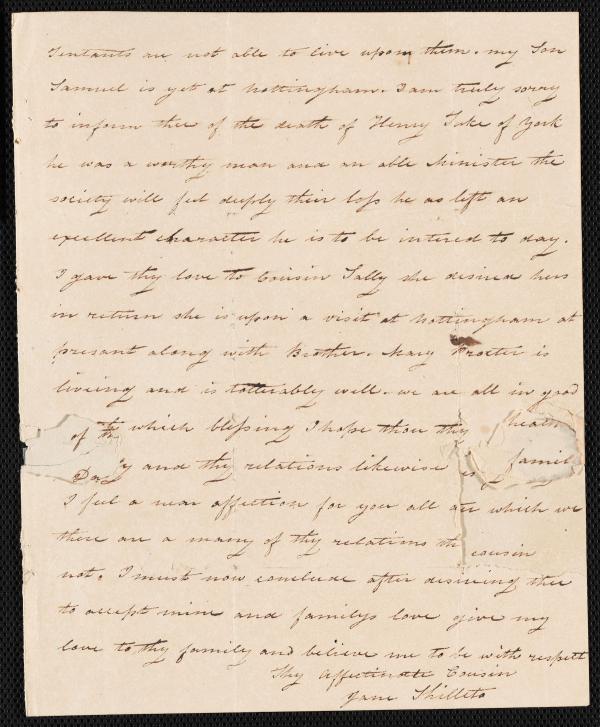 Tentants are not able to live upon them. my Son
Samuel is yet at Nottingham. I am truly sorry
to inform thee of the death of Henry Tuke of York
he was a worthy man and an able Minister the
society will feel deeply their loss he as left an
excellent character he is to be intered to day.
I gave thy love to Cousin Sally she desired hers
in return she is upon a visit at Nottingham at
presant along with Brother. Mary Procter is
liveing and is tollerably well. we are all in good
of which blessing I hope thou thy health
y and thy relations likewise is famil
I feel a near affection for you all
there are a many of thy relations th which we
cousin
not. I must now conclude after desireing thee
to accept mine and familys love give my
love to thy family and believe me to be with respect
Thy Affectinate Cousin
Jane Shillito